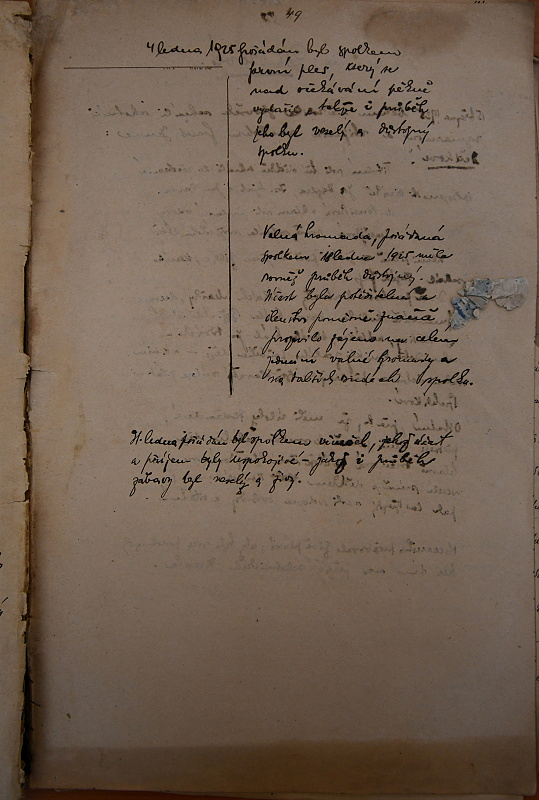 49
4 ledna 1925 pořádán byl spolkem
první ples, který se
nad očekávání pěkně
vydařil a taktéž i průběh
jeho byl veselý a důstojný
spolku.
Valná hromada, pořádaná
spolkem 18 ledna 1925 měla
rovněž průběh důstojný.
Účast byla potěšitelná a
členstvo poměrně značně
projevilo zájem na celém
jednání valné hromady a
na dalších spolku.
ledna pořádán byl spolkem věneček, jehož účast
a příjem byly uspokojivé – jakož i průběh
zábavy byl veselý a živý.